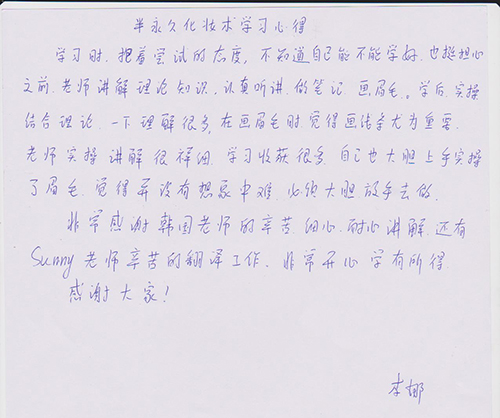 半永久化妆术学习心得
学习时.抱着尝试的态度，不知道自己能不能学好.也挺担心
之前.老师讲解理论知识，认真听讲.做笔记.画眉毛。学后.实操
结合理论.一下理解很多,在画眉毛时.觉得画法尤为重要.
老师实操讲解很祥细.学习收获很多.自己也大胆上手实操
了眉毛.觉得并没有想象中难.必须大胆放手去做.
非常感谢韩国老师的辛苦.细心.耐心讲解.还有
Sunny老师辛苦的翻译工作.非常开心学有所得
感谢大家!
李娜